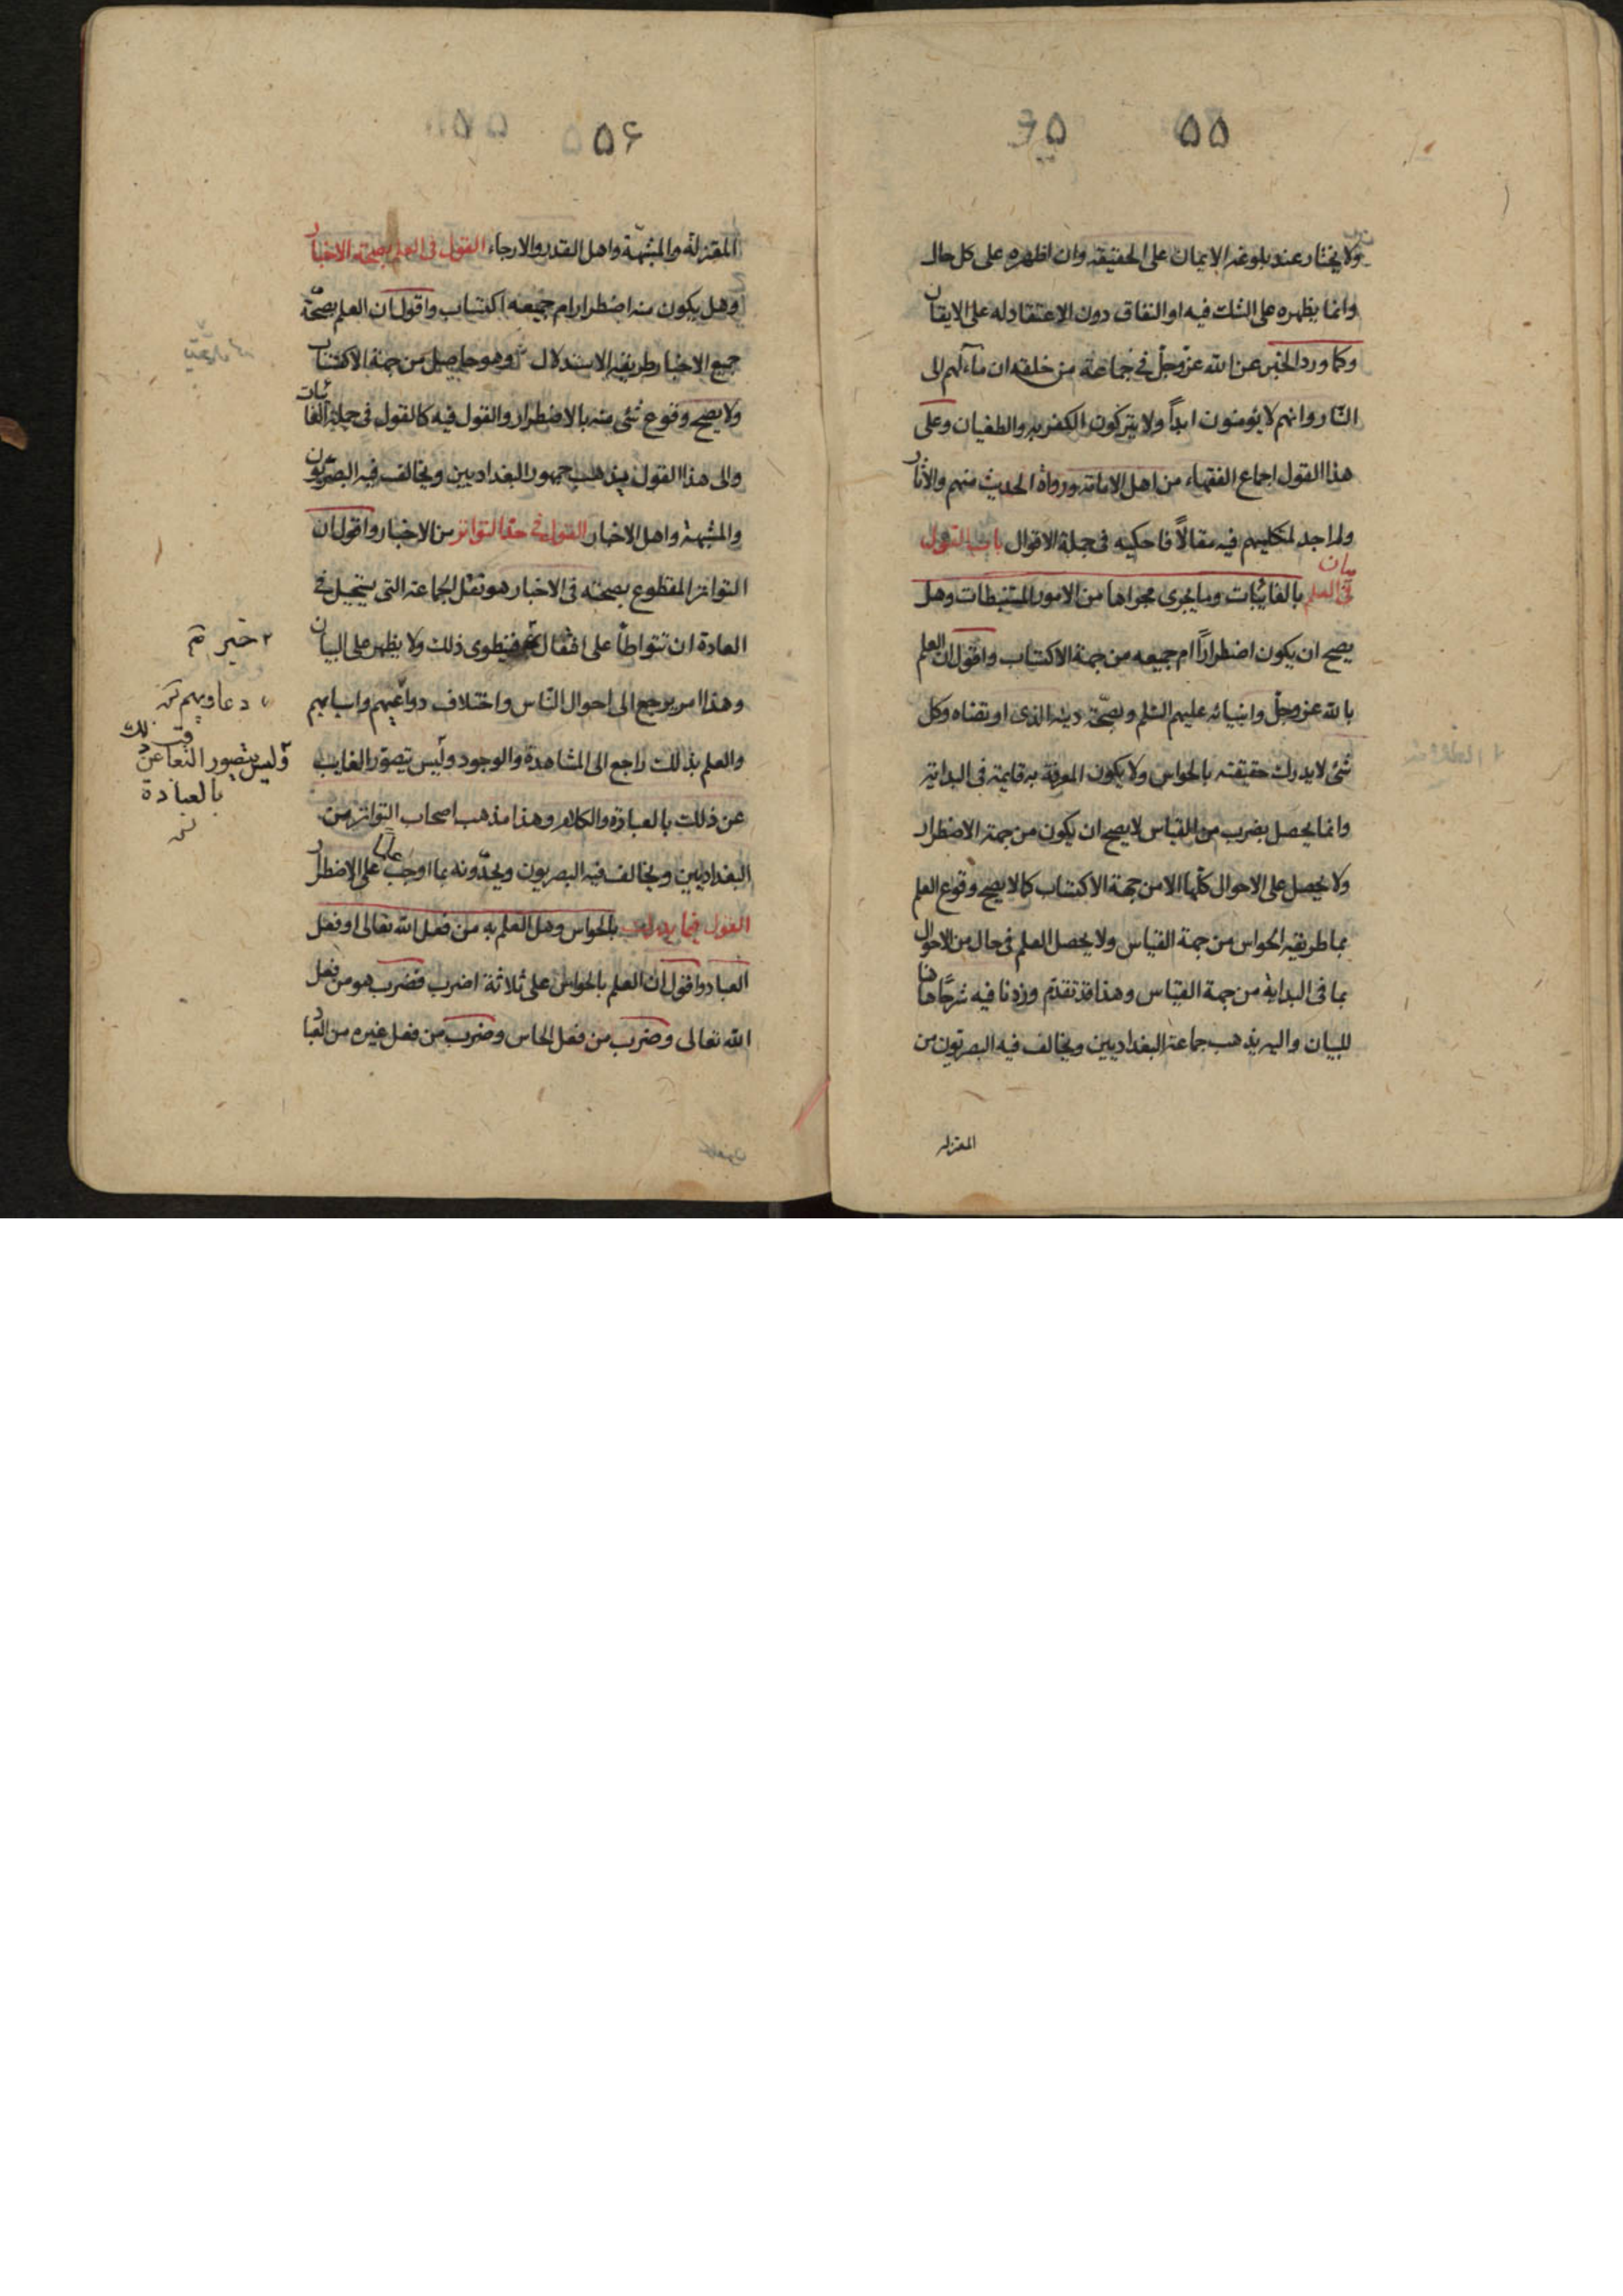 ۵۵
ولا يختار عند بلوغه الايمان على الحقيقة وان اظهره على كل حال
وانما يظهره على الشك فيه او النفاق دون الاعتقاد له على الايقان
وكما ورد الخبر عن الله عزّ وجلّ في جماعة من خلقه ان مآلهم الى
النّار وانهم لا يؤمنون ابداً ولا يتركون الكفر به والطغيان وعلى
هذا القول اجماع الفقهاء من اهل الامامة ورواة الحديث منهم والآثار
ولم اجد لمتكليهم فيه مقالاً فاحكيه في جملة الاقوال باب القول
في بيان العلم بالغائبات وما يجرى مجراها من الامور المستنبطات وهل
يصح ان يكون اضطراراً ام جميعه من جهة الاكتساب واقول ان العلم
بالله عز وجلّ وانبيائه عليهم السّلم وبصحّة دينه الذى ارتضاه وكل
شئ لا يدرك حقيقته بالحواس ولا يكون المعرفة به قايمة في البداية
وانما يحصل بضرب من القياس لا يصح ان يكون من جهة الاضطرار
ولا يحصل على الاحوال كلّها الا من جهة الاكتساب كما لا يصح وقوع العلم
بما طريقه الحواس من جهة القياس ولا يحصل العلم في حال من الاحوال
بما في البداية من جهة القياس وهذا قد تقدّم وزدنا فيه شرحًا هنا
للبيان واليه يذهب جماعة البغداديين ويخالف فيه البصريّون من
المعتزلة
۵۶
المعتزلة والمشبّهة واهل القدر والارجاء القول في العلم بصحة الاخبار
وهل يكون منه اضطرار ام جميعه اكتساب واقول ان العلم بصحّة
جميع الاخبار طريقه الاستدلال وهو حاصل من جهة الاكتساب
ولا يصح وقوع شئ منه بالاضطرار والقول فيه كالقول في جملة الغائبات
والى هذا القول يذهب جمهور البغداديين ويخالف فيه البصريّون
والمشبهة واهل الاخبار القول في حدّ التواتر من الاخبار واقول ان
التواتر المقطوع بصحته في الاخبار هو نقل الجماعة التى يستحيل في
العادة ان تتواطأ على افتعال فينطوى ذلك ولا يظهر على البيان
وهذا امر يرجع الى احوال النّاس واختلاف دواعيهم واسبابهم
والعلم بذلك راجع الى المشاهدة والوجود وليس تيصوّر الغايب
عن ذلك بالعبارة والكلام وهذا مذهب اصحاب التواتر من
البغداديين ويخالف فيه البصريون ويحدّونه بما اوجب علما على الاضطرار
القول فيما يدرك بالحواس وهل العلم به من فعل الله تعالى او فعل
العباد واقول ان العلم بالحواس على ثلاثة اضرب فضرب هو من فعل
الله تعالى وضرب من فعل الحاس وضرب من فعل غيره من العباد
خبر
دعاويهم
وليس يتصور
بالعبادة